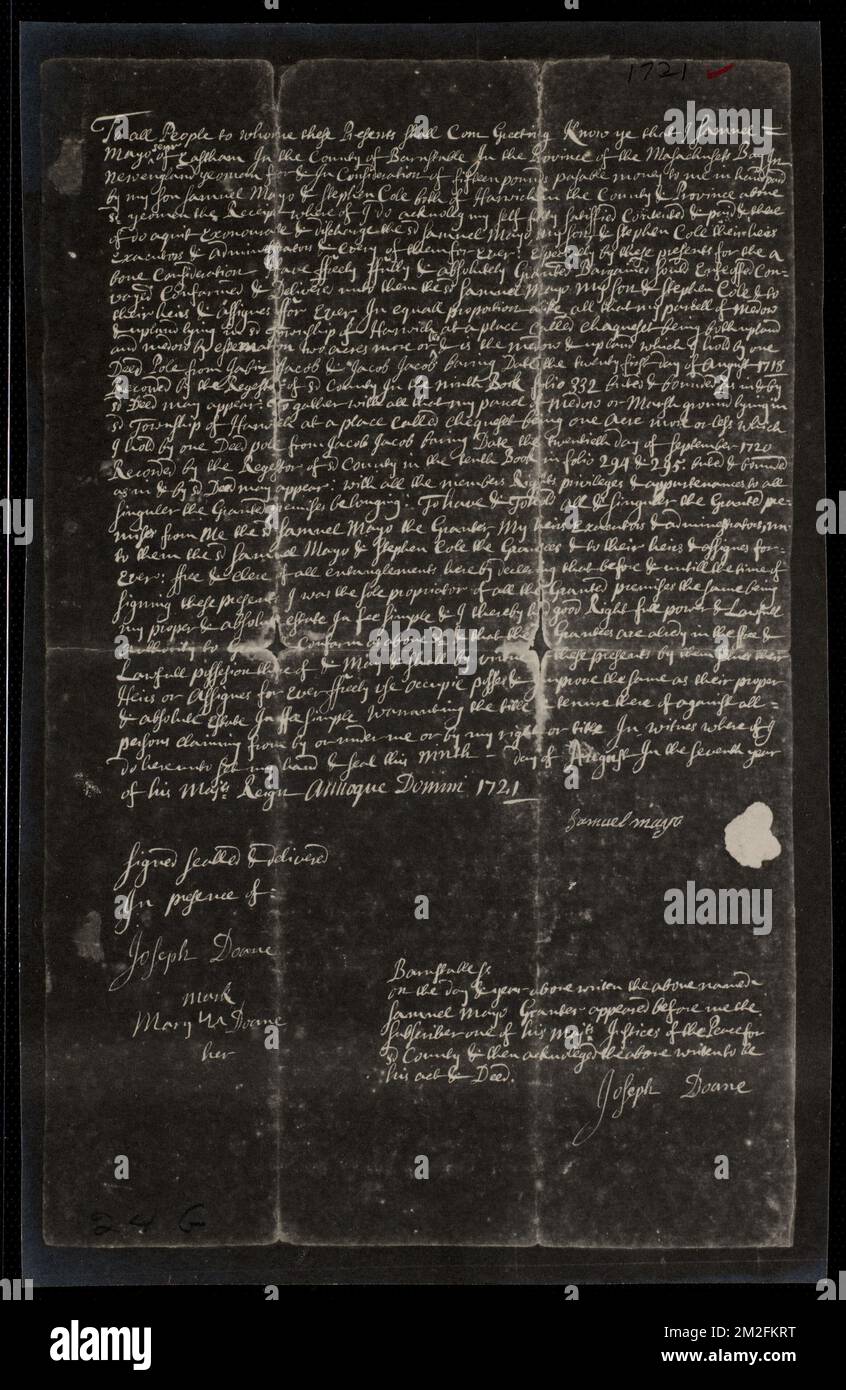 1721
To all People to whome these Presents shall Com Greeting Know ye that I Samuel =
Mayo senr of Eastham In the County of Barnstable In the Province of the Masachusets Bay In
newengland yeoman for & In Consideration of fifteen pounds passable money to me in hand paid
by my son Samuel Mayo & Stephen Cole both of Harwich in the County & Province above
sd yeomen the Receipt where of I do acknolig my self fully sattisfied Contented & paid & there
of do aquit Exonourate & discharge the sd Samuel Mayo my son & Stephen Cole their heirs
Executors & administrators & Every of them for Ever: by these presents for the a
bove Consideration have ffreely ffully & absolutely Granted Bargained sould Enfeoffed Con-
vayed Conformed & Delivered unto them the sd Samuel Mayo my son & Stephen Cole & to
their heirs & assignes ffor Ever In equall proportion all that my parcell of medow
& upland lying in sd Township of Harwich at a place Called chequeset being both upland
and medow by estemation two acres more or les & is the medow & upland which I hold by one
Deed Pole from Jacob & Jacob Jacob baring Date the twenty first day of August 1718
Reconed by the Regester of sd County In the ninth Book folio 332 buted & bounded as in & by
sd Deed may appear: Togather with all that my parcel of medow or Marsh ground lying in
sd Township of Harwich at a place Called chequeset being one Acre more or less which
I hold by one Deed pole from Jacob Jacob baring Date the twentieth day of September 1720
Recorded by the Regester of sd County in the tenth Book in folio 294 & 295. buted & bounded
as in & by sd Deed may appear: with all the members Rights privileges & appurtenances to all
singuler the Granted premises belonging: To have & To hold all & singuler the Granted pre-
mises from me the sd Samuel Mayo the Granter My heirs Executors & administrators, un-
to them the sd Samuel Mayo & Stephen Cole the Grantees & to their heirs & assignes for-
Ever: ffree & clere of all entanglements here by declering that before & untill the time of
signing these presents I was the sole propriator of all the Granted premises the same being
my proper & absolute estate In fee simple & I thereby had good Right full power & Lawfull
authority to Conform as aboves & that the Grantees are alredy in the free &
Lawfull possession there of & May & shall by virtue these presents by them selves their
Heirs or Assignes for Ever ffreely use occupie posses & Improve the same as their proper
& absolute Estate In ffee simple warranting the title & tenure there of against all =
persons claiming from by or under me or by my right or title In witnes where of I
do here unto set my hand & seal this ninth day of August In the seventh year
of his Majts Reign Annoque Domini 1721
Samuel mayo
Signed sealled & delivered
In presence of:
Joseph Doane
mark
Mary Doane
her
Barnstable ss
on the day & year above writen the above named
Samuel Mayo Granter appeared before me the
subscriber one of his Majts Justices of the Peace for
sd County & then acknoleged the above writen to be
his act & Deed.
Joseph Doane
24 G
alamy
Image ID: 2M2FKRT
www.alamy.com